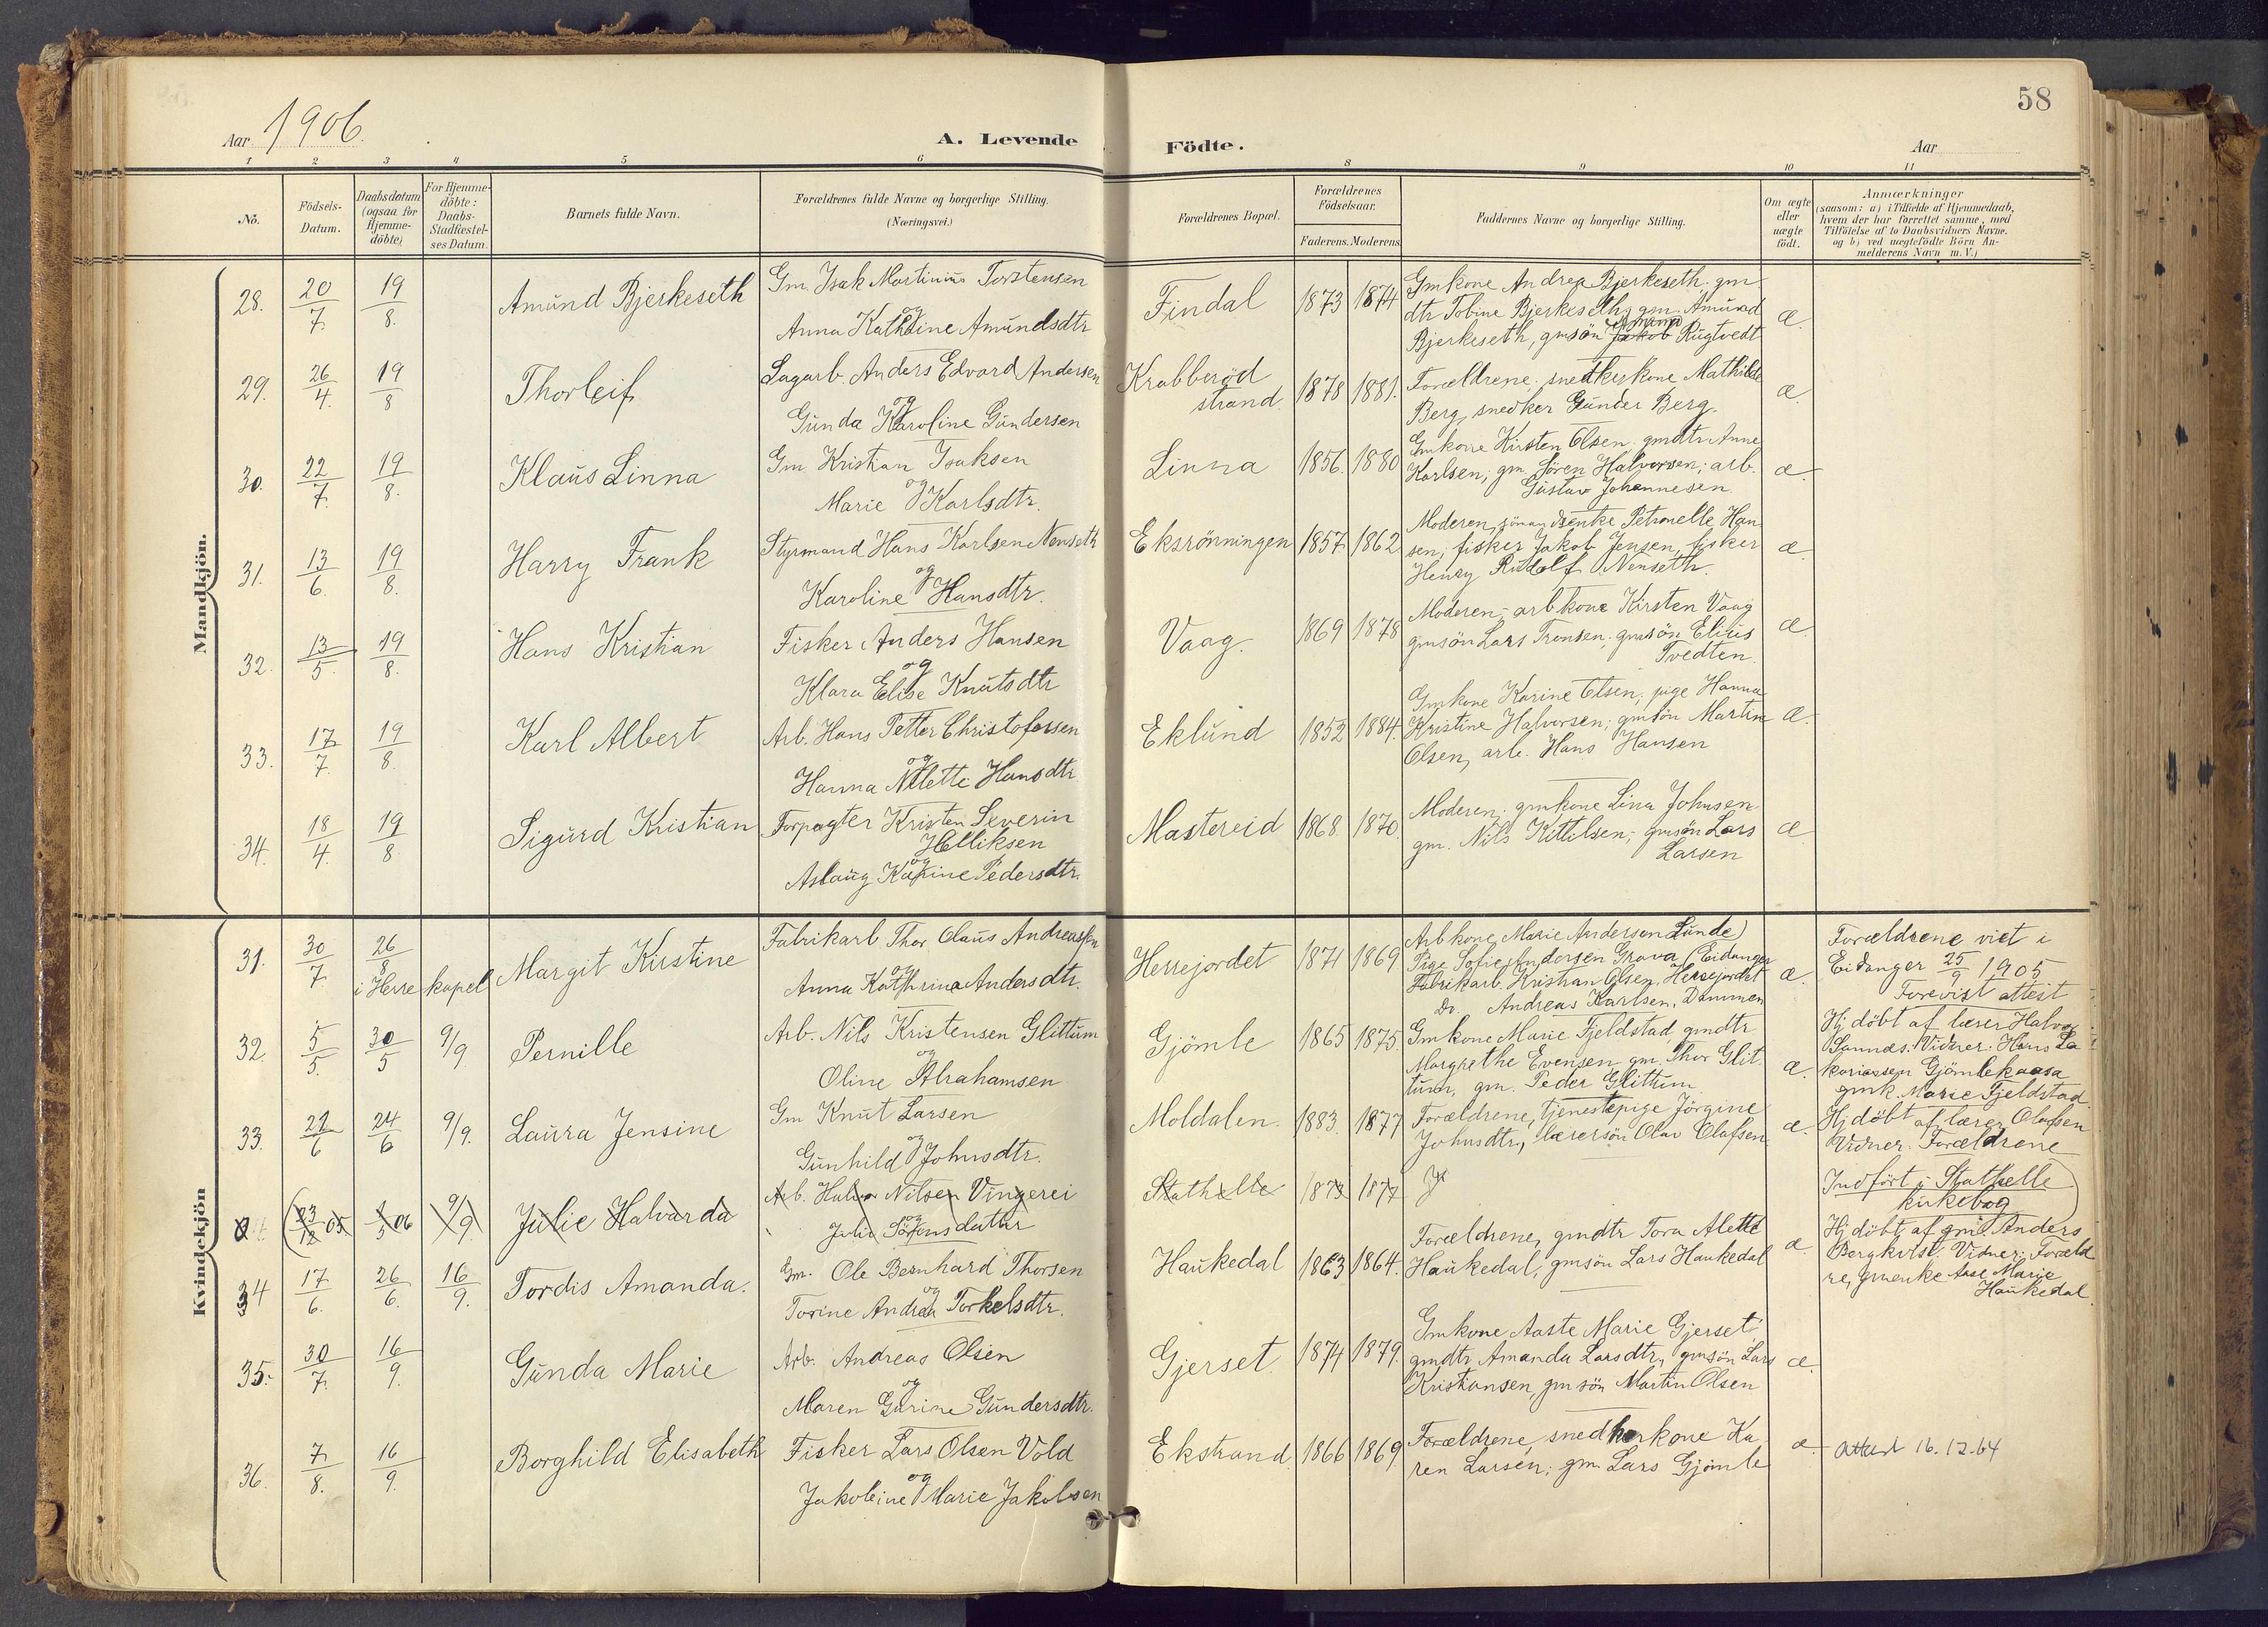 58
Aar 1906.
A. Levende Födte.
Aar
1 2 3 4 5 6 8 9 10 11
No.
Födsels-
Datum.
Daabsdatum
(ogsaa for
Hjemme-
döbte)
For Hjemme-
döbte:
Daabs-
Stadfæstel-
ses Datum.
Barnets fulde Navn.
Forældrenes fulde Navne og borgerlige Stilling.
(Næringsvei.)
Forældrenes Bopæl.
Forældrenes
Födselsaar.
Faderens. Moderens
Faddernes Navne og borgerlige Stilling.
Om ægte
eller
uægte
födt.
Anmærkninger
(saasom: a) i Tilfælde af Hjemmedaab,
hvem der har forrettet samme, med
Tilföielse af to Daabsvidners Navne.
og b) ved uægtefödte Börn An-
melderens Navn m.V.)
Mandkjön.
28. 20/7. 19/8. Amund Bjerkeseth
Gm. Isak Martinius Torstensen
og
Anna Kathrine Amundsdtr.
Findal 1873 1874
Gmkone Andrea Bjerkeseth. gm-
dtr Tobine Bjerkeseth, gm. Amund
Bjerkeseth, gmsön Jakob Rugtvedt
æ.
29. 26/4. 19/8 Thorleif
Sagarb. Anders Edvard Andersen
og
Gunda Karoline Gundersen
Krabberöd
strand. 1878 1881.
Forældrene. snedkerkone Mathilde
Berg, snedker Gunder Berg.
æ.
30. 22/7. 19/8. Klaus Linna
Gm. Kristian Isaksen
og
Marie Karlsdtr.
Linna 1856. 1880
Gmkone Kirsten Olsen. gmdtr. Anne
Karlsen; gm. Sören Halvorsen; arb.
Gustav Johannesen
æ.
31. 13/6. 19/8. Harry Frank
Styrmand Hans Karlsen Nenseth
og
Karoline Hansdtr.
Eksrönningen 1857. 1862
Moderen, sömandsenke Petronelle Han
sen; fisker Jakob Jensen, fisker
Henry Rudolf Nenseth.
æ.
32. 13/5. 19/8. Hans Kristian
Fisker Anders Hansen
og
Klara Elise Knutsdtr
Vaag. 1869 1878
Moderen, arbkone Kirsten Vaag
gmsön Lars Tronsen, gmsön Elius
Tvedten.
æ.
33. 17/7. 19/8. Karl Albert
Arb. Hans Petter Christofersen
og
Hanna Nilette Hansdtr.
Eklund 1852 1884.
Gmkone Karine Olsen, pige Hanna
Kristine Halvorsen; gmsön Martin
Olsen, arb. Hans Hansen
æ.
34. 18/4. 19/8 Sigurd Kristian
Forpagter Kristen Severin
Helliksen
og
Aslaug Karine Pedersdtr.
Mastereid 1868 1870.
Moderen, gmkone Lina Johnsen
gm. Nils Kittilsen; gmsön Lars
Larsen
æ
Kvindekjön
31. 30/7. 26/8 i Herre kapel Margit Kirstine
Fabrikarb. Thor Olaus Andreassen
og
Anna Kathrine Andersdtr.
Herrejordet 1871 1869
Arbkone Marie Andersen Lunde
Pige Sofie Andersen Grava (Eidanger)
Fabrikarb. Kristian Olsen, Herrejordet
Do. Andreas Karlsen, Dammen
æ.
Forældrene viet i
Eidanger 25/9 1905
Forevist attest
32. 5/5. 30/5 9/9. Pernille
Arb. Nils Kristensen Glittum
og
Oline Abrahamsen
Gjömle 1865 1875.
Gmkone Marie Fjeldstad, gmdtr
Margrethe Evensen, gm. Thor Glit
tum, gm. Peder Glittum
æ.
Hj. döbt af lærer Halvor
Sannes. Vidner: Hans Za
kariassen Gjömlekaasa
gmk. Marie Fjeldstad.
33. 21/6 24/6 9/9. Laura Jensine
Gm Knut Larsen
og
Gunhild Johnsdtr.
Moldalen. 1883. 1877
Forældrene, tjenestepige Jörgine
Johnsdtr, lærersön Olav Olafsen.
æ.
Hj. döbt af lærer Olafsen
Vidner: Forældrene
(23/12 05 06 9/9. Julie Halvarda
Arb. Halvor Nilsen Vingerei
og
Julie Sörensdatter
Stathelle 1873 1877
Indfört i Stathelle
kirkebog)
34 17/6. 26/6. 16/9. Tordis Amanda.
Gm. Ole Bernhard Thorsen
og
Torine Andrea Torkelsdtr.
Haukedal 1863 1864.
Forældrene, gmdtr Tora Alette
Haukedal, gmsön Lars Haukedal
æ.
Hj. döbt af gm. Anders
Bergkvist. Vidner: Foræld
re, gmenke Aase Marie
Haukedal.
35. 30/7. 16/9. Gunda Marie
Arb. Andreas Olsen
og
Maren Gurine Gundersdtr.
Gjerset. 1874 1879.
Gmkone Aaste Marie Gjerset,
gmdtr Amanda Larsdtr, gmsön Lars
Kristiansen, gmsön Martin Olsen
æ.
36. 7/8. 16/9. Borghild Elisabeth
Fisker Lars Olsen Vold
og
Jakobine Marie Jakobsen
Ekstrand. 1866 1869.
Forældrene, snedkerkone Ka-
ren Larsen; gm. Lars Gjömle
æ.
Attest 16.12.64